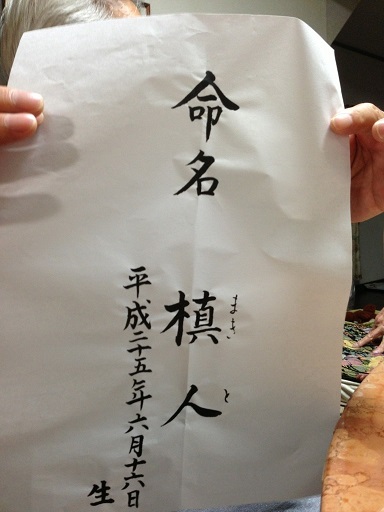 命名
槙人
まき と
平成二十五年六月十六日
生